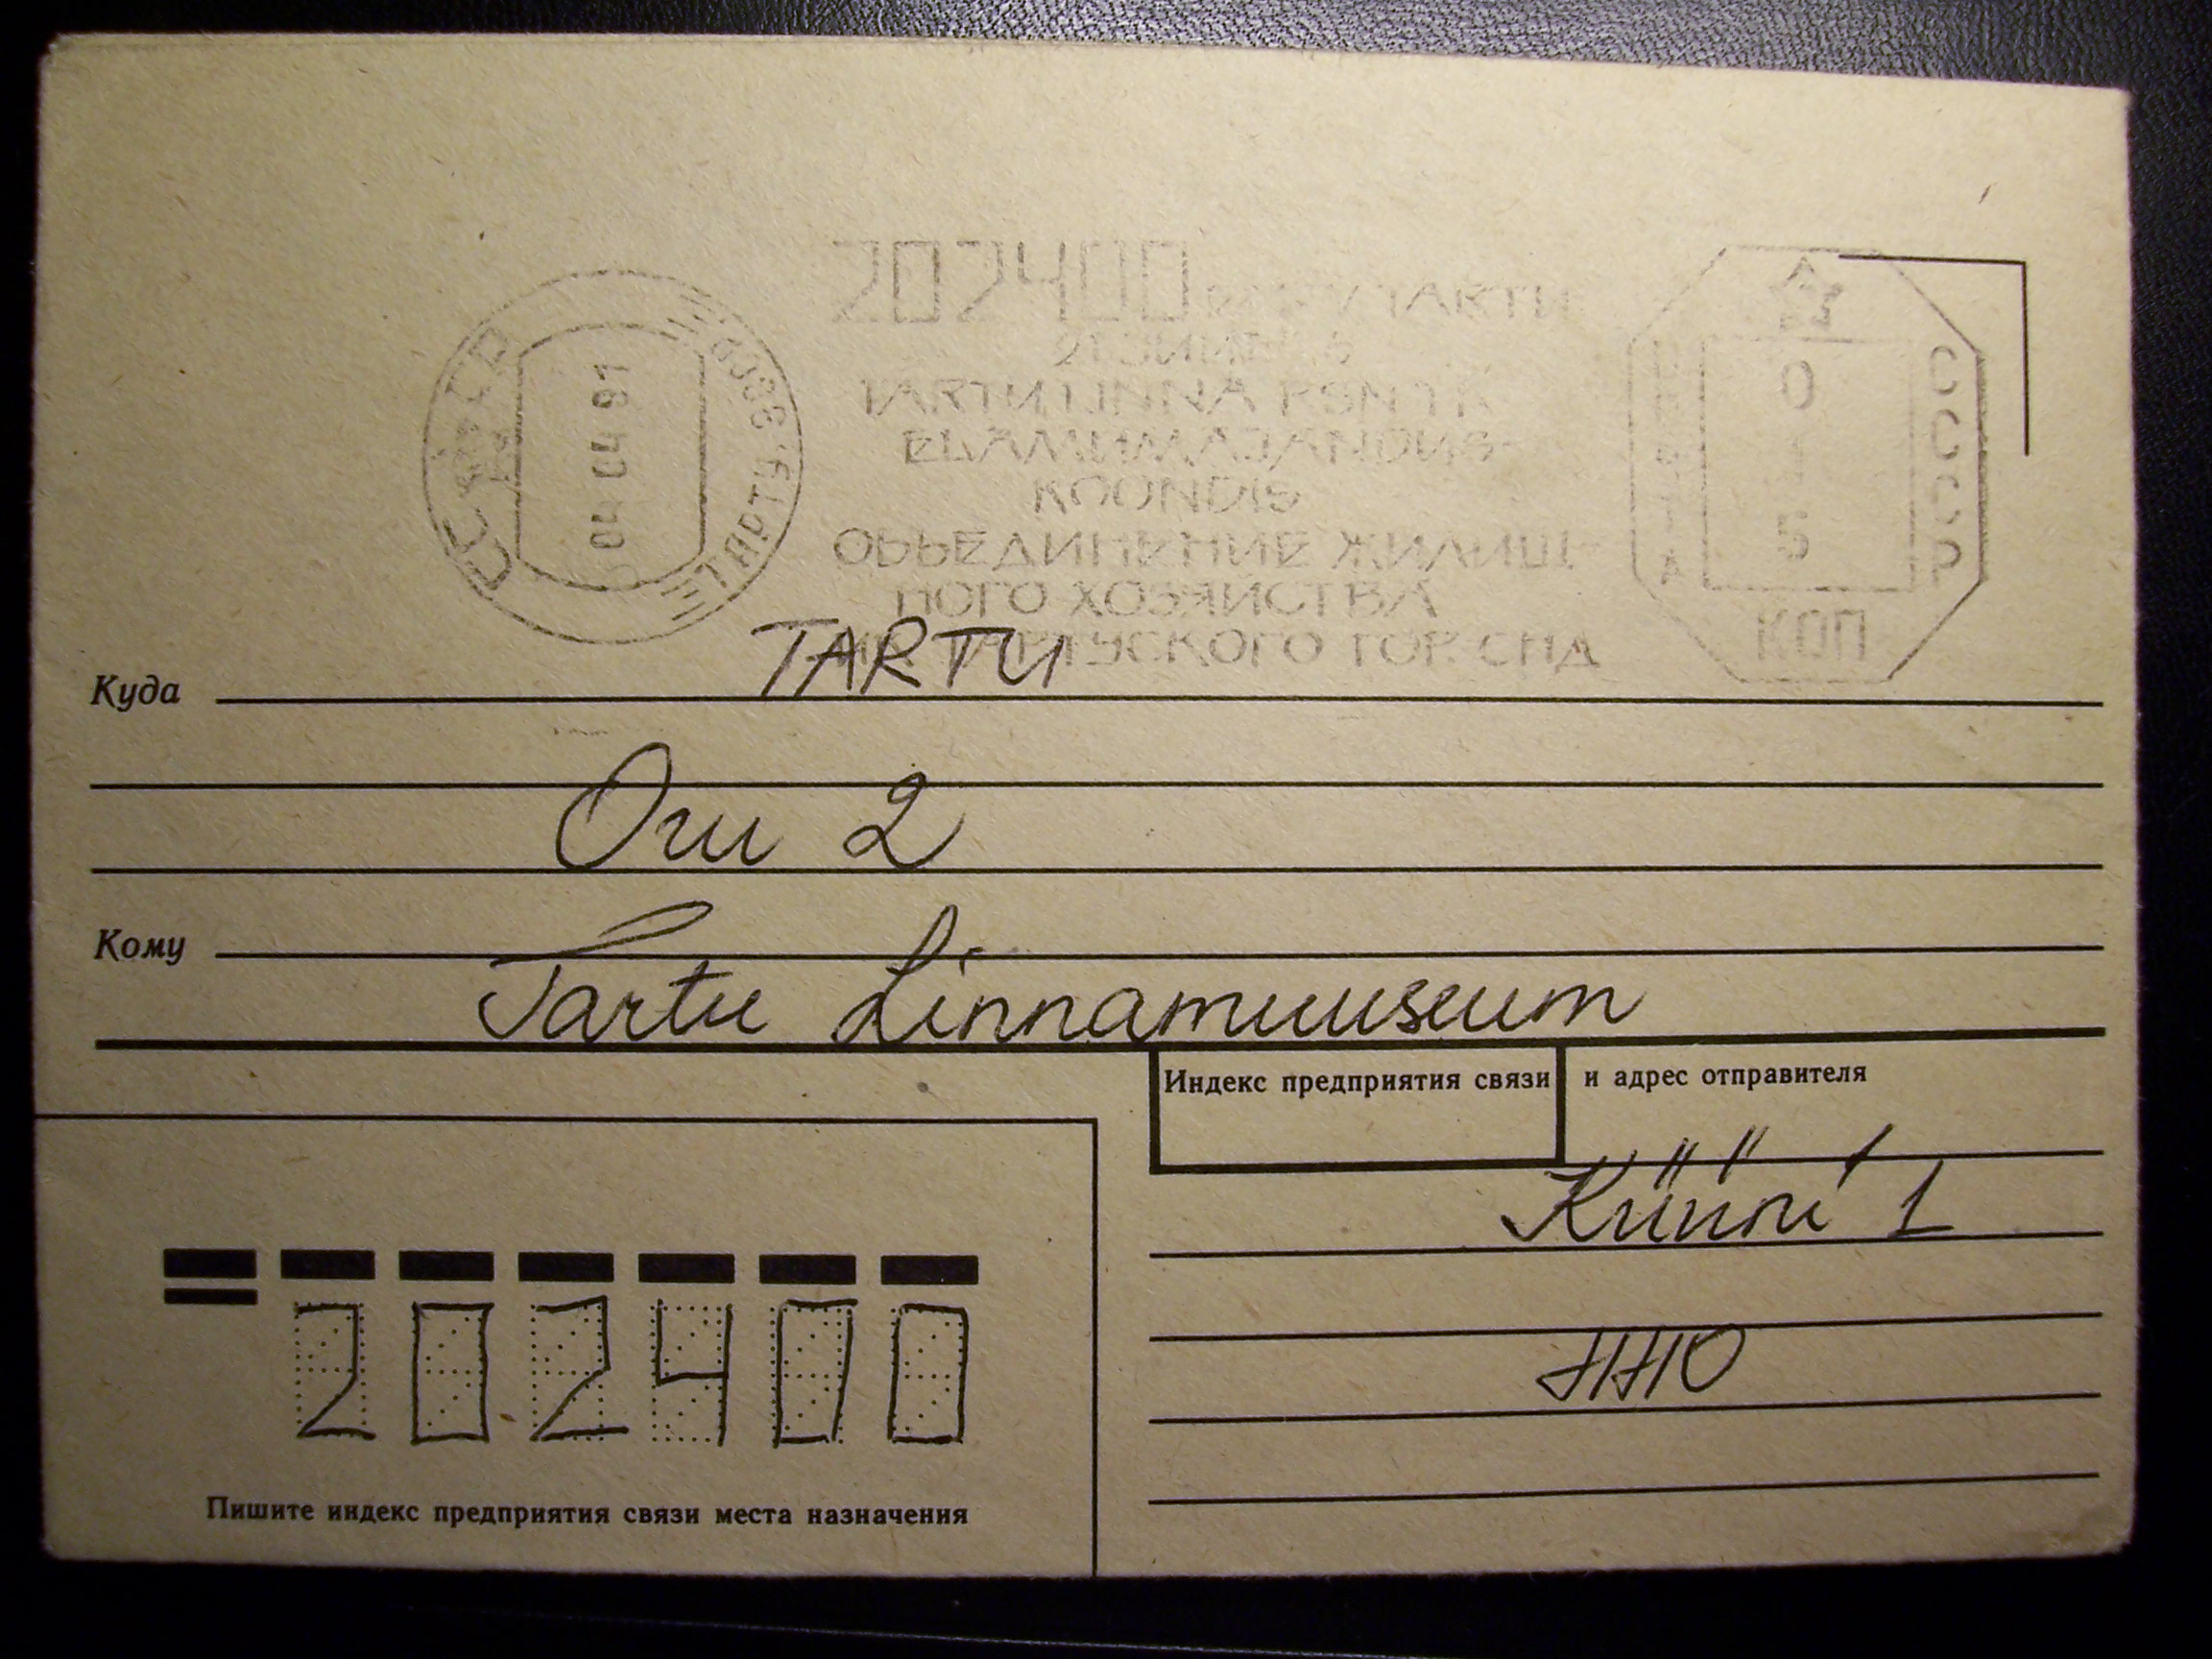 202400 TARTU
TARTU LINNA RSN TK
ELAMUMAJANDUS-
KOONDIS
ОБЪЕДИНЕНИЕ ЖИЛИЩ-
НОГО ХОЗЯЙСТВА
ТАРТУСКОГО ГОР. СНД
СССР
04 04 91
ТАРТУ
ПОЧТА
СССР
0
1
5
КОП
Куда TARTU
Oru 2
Кому
Tartu Linnamuuseum
Индекс предприятия связи и адрес отправителя
Küüni 1
202400
Пишите индекс предприятия связи места назначения